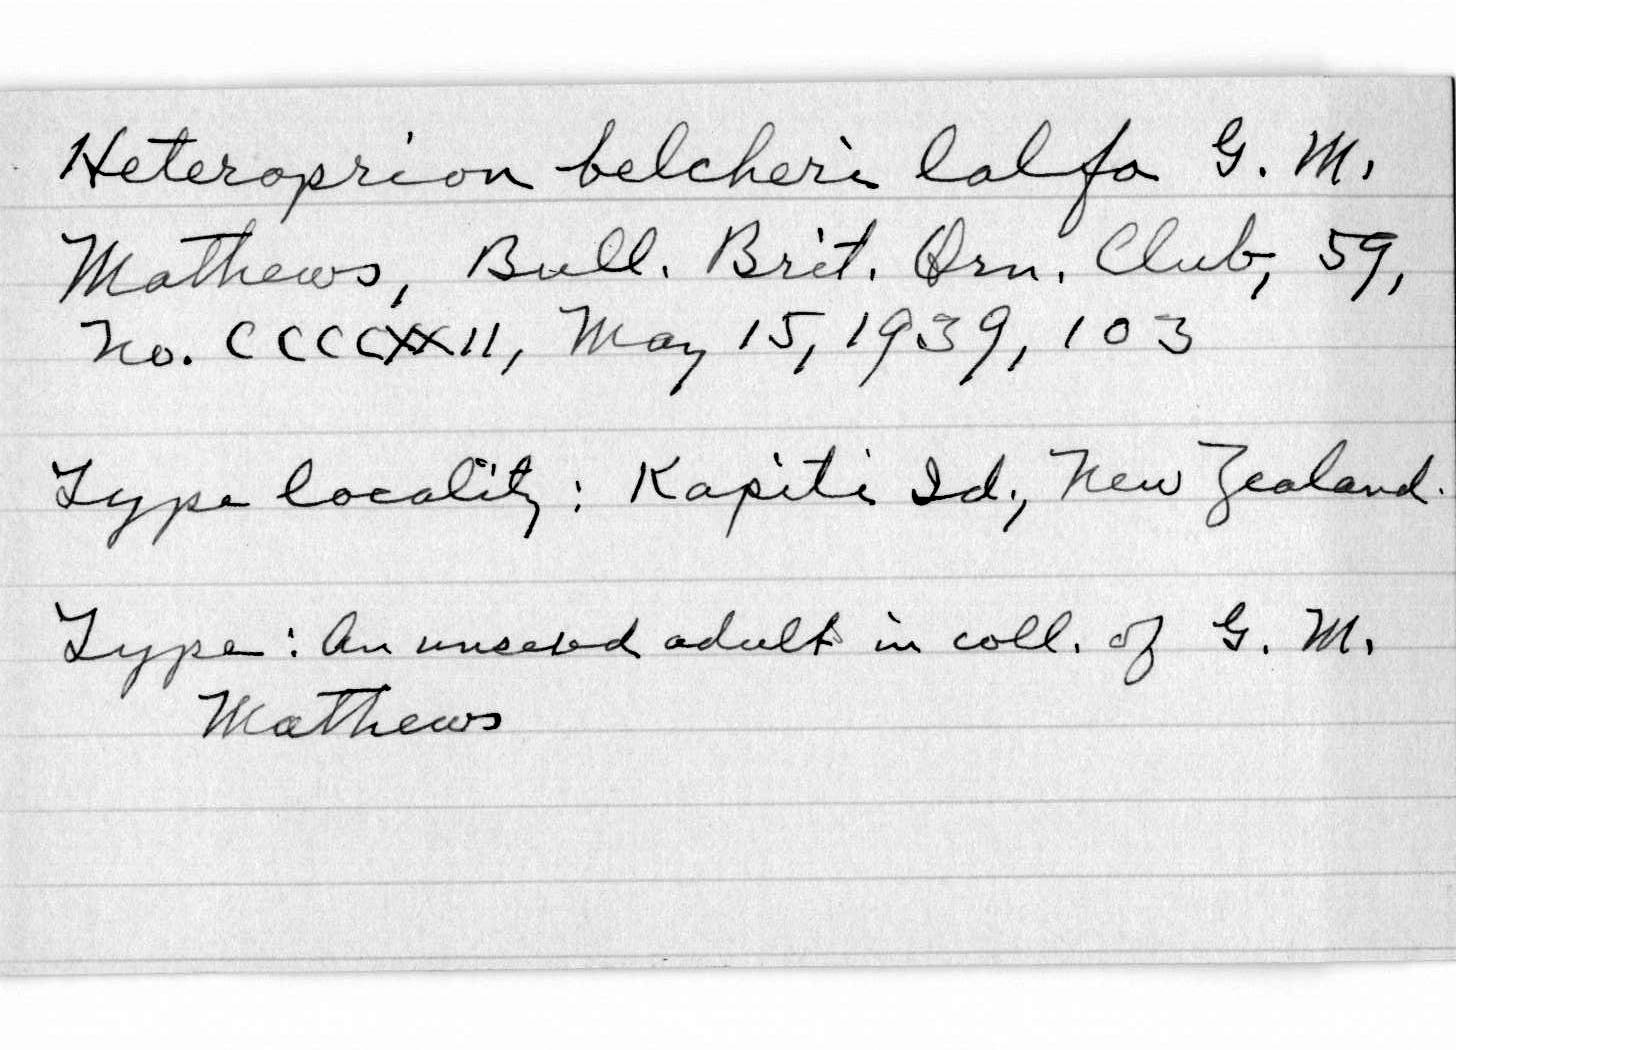 Heteroprion belcheri lalfa G. M.
Mathews, Bull. Brit. Orn. Club, 59,
No. CCCCXXII, May 15, 1939, 103
Type locality: Kapiti Id., New Zealand.
Type: An unsexed adult in coll. of G. M.
Mathews